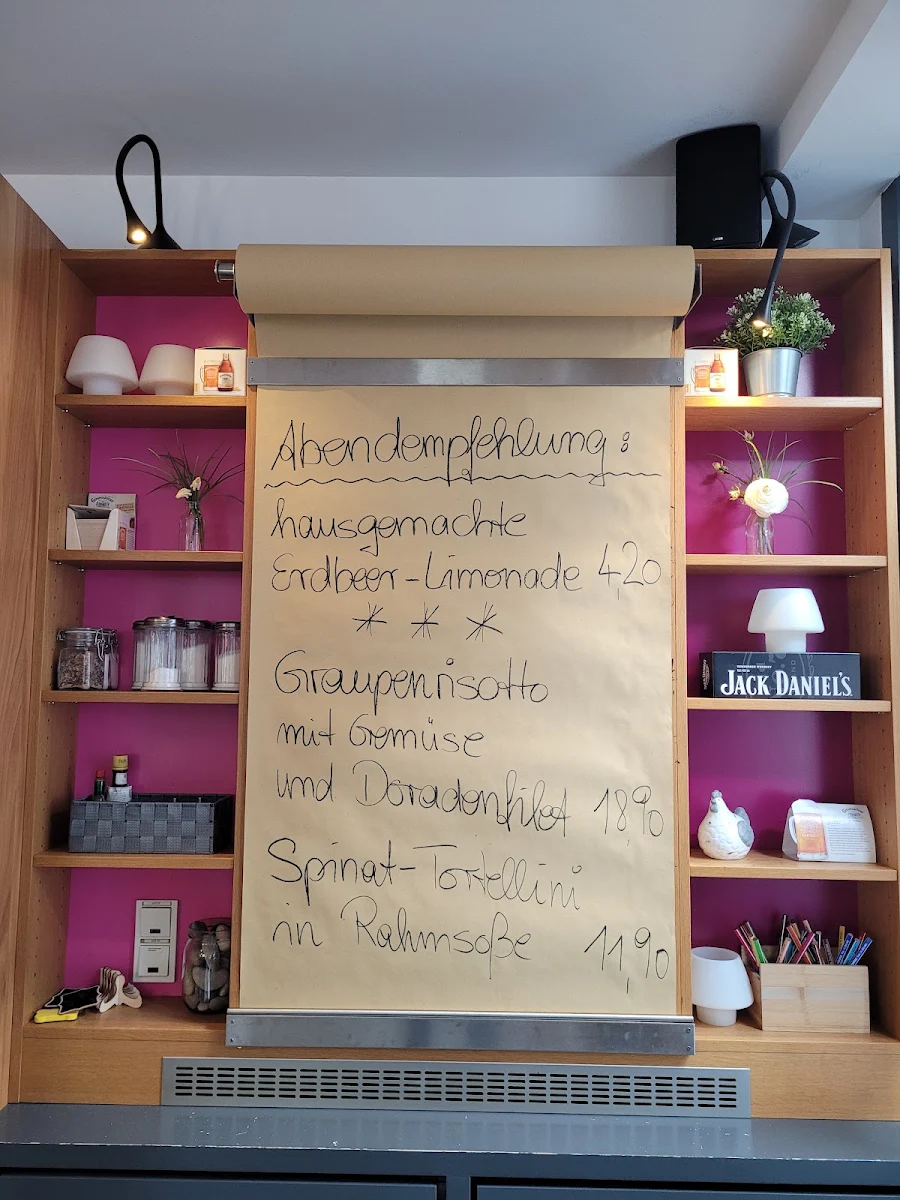 Abendempfehlung:
hausgemachte
Erdbeer-Limonade 4,20
* * *
Graupenrisotto
mit Gemüse
und Doradenfilet 18,90
Spinat-Tortellini
in Rahmsoße 11,90
JACK DANIEL'S